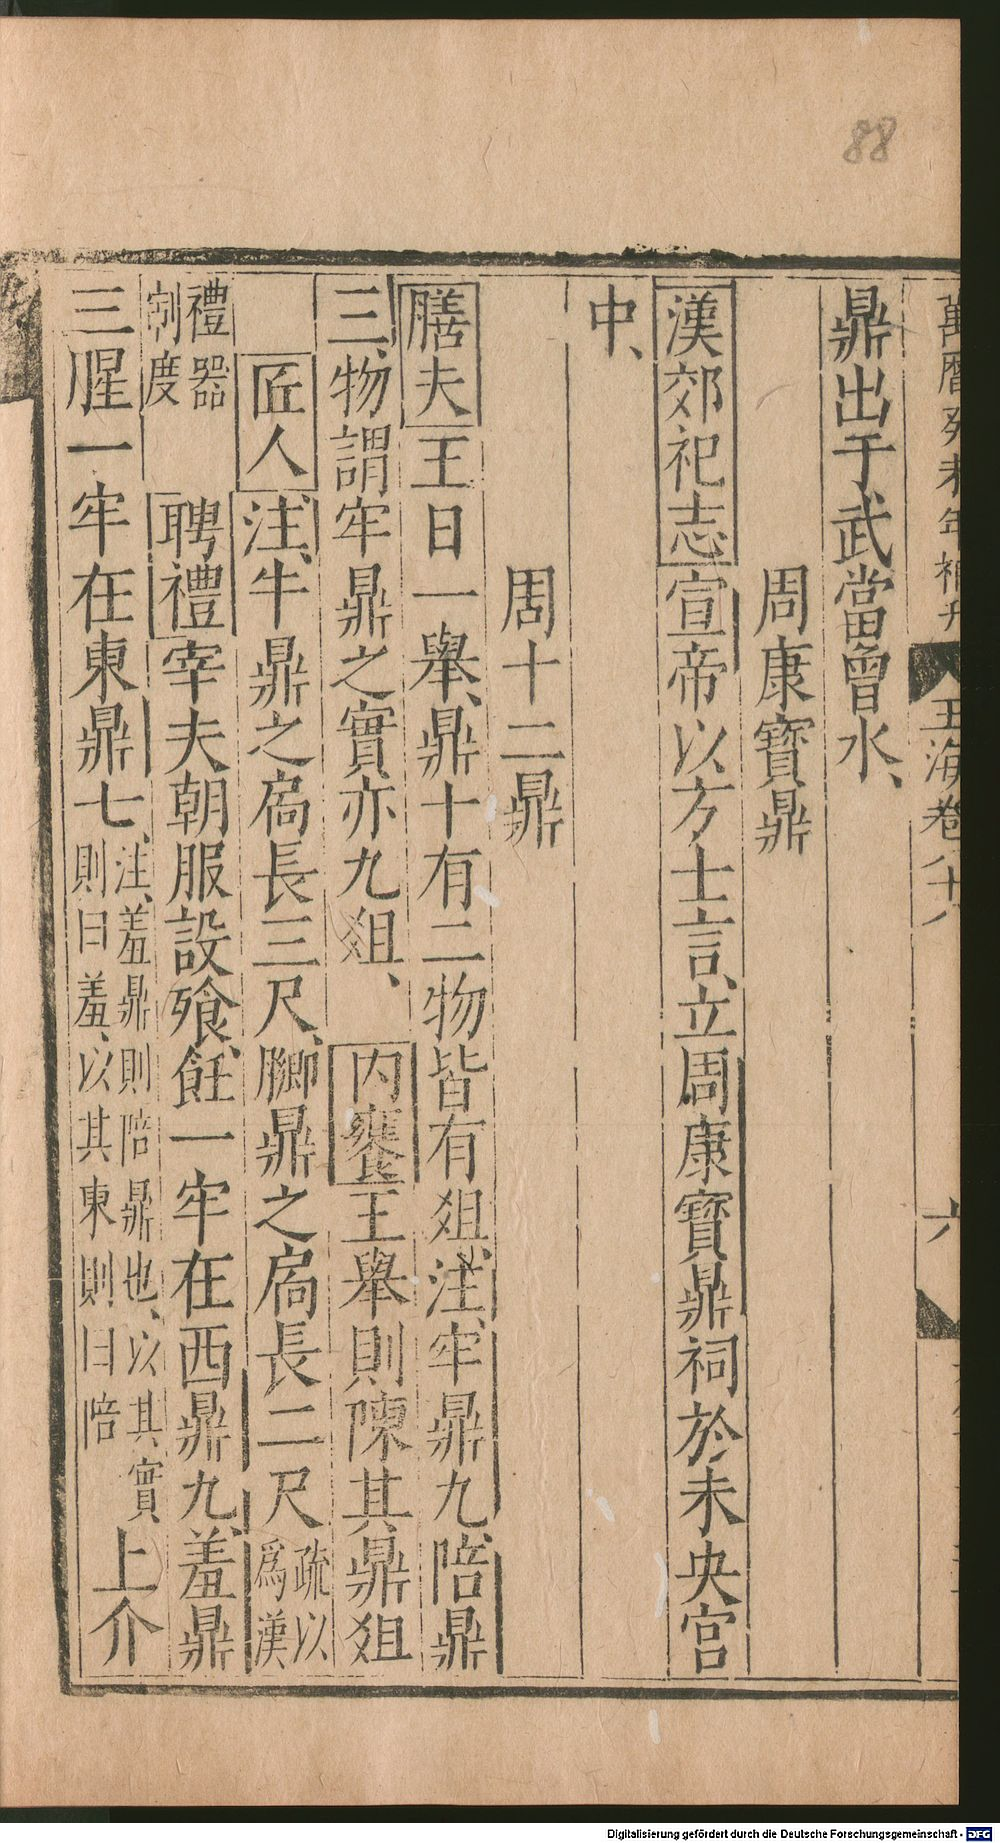 88
萬曆癸未年補刊
玉海卷八十八
六
鼎出于武當曾水、
周康寶鼎
漢郊祀志宣帝以方士言、立周康寶鼎祠於未央宮
中、
周十二鼎
膳夫王日一舉、鼎十有二物皆有俎、注、牢鼎九、陪鼎
三、物謂牢鼎之實亦九俎、內饔王舉則陳其鼎俎
匠人注、牛鼎之扃長三尺、膷鼎之扃長二尺疏以
爲漢
禮器
制度
聘禮宰夫朝服設飱、飪一牢在西鼎九、羞鼎
三腥一牢在東鼎七、注、羞鼎則陪鼎也、以其實
則曰羞、以其東則曰陪
上介
Digitalisierung gefördert durch die Deutsche Forschungsgemeinschaft - DFG